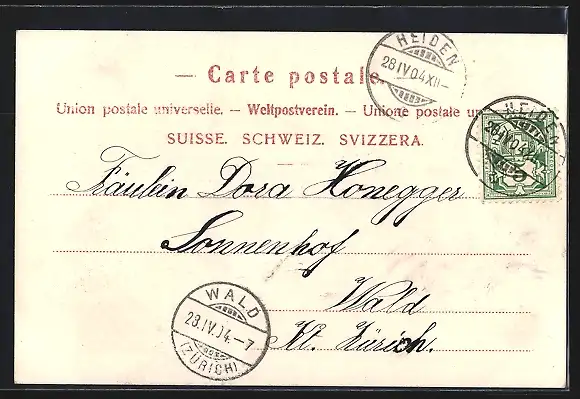 HEIDEN
28.IV.04.XII–
— Carte postale.
Union postale universelle. — Weltpostverein. — Unione postale un
SUISSE. SCHWEIZ. SVIZZERA.
HEIDEN
Fräulein Dora Honegger
Sonnenhof
Wald
Kt. Zürich.
WALD
28.IV.04.–7
(ZÜRICH)